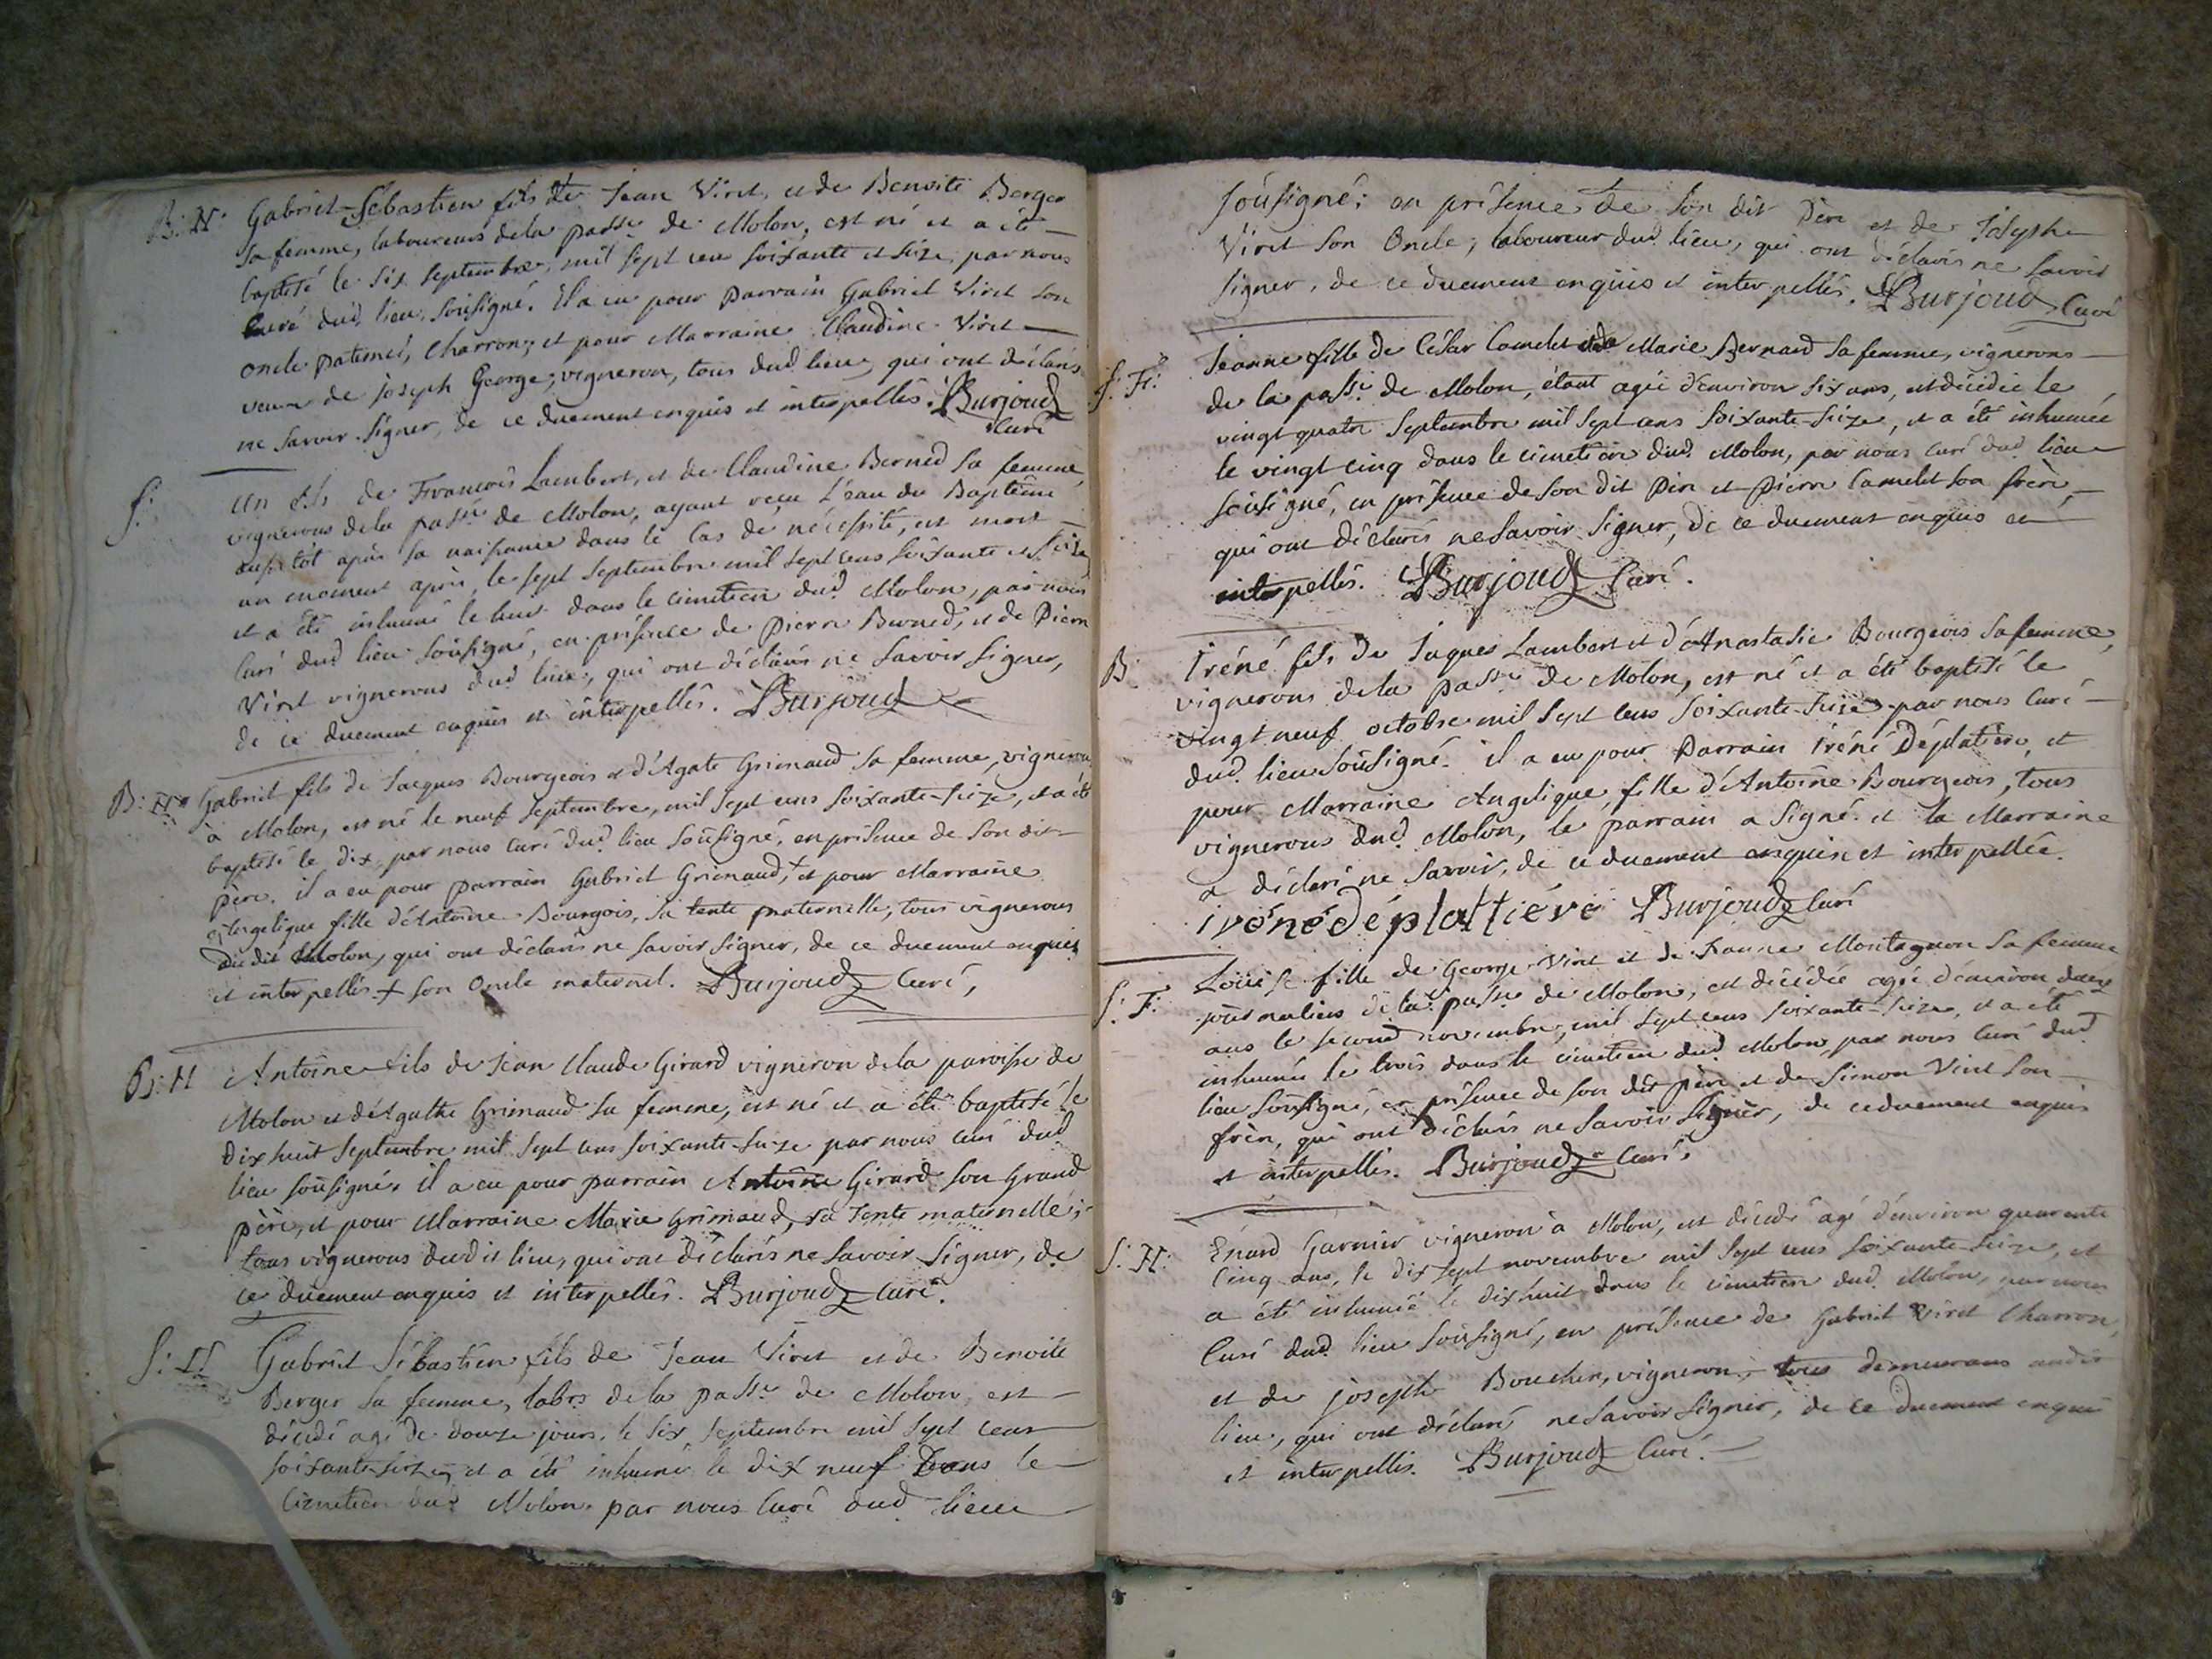 B: H: Gabriel-Sébastien fils de Jean Viret, et de Benoite Berger
sa femme, laboureurs dela passe de Molon, est né et a été
baptisé le six septembre, mil sept cens soixante et seize, par nous
Curé dud. lieu, soûsigné. Il a eu pour parrain Gabriel Viret son
oncle paternel, Charron; et pour Marraine Claudine Viret
veuve de joseph George, vigneron, tous dud. lieu, qui ont déclarés
ne savoir signer, de ce duement enquis et interpellés. Burjoud
Curé
S: un fils de Francois Lambert, et de Claudine Berned sa femme,
vignerons dela passe de Molon, ayant reçu l'eau du Baptême
aussitôt après sa naissance dans le cas de nécessité, est mort
un moment après, le sept septembre mil sept cens soixante et seize
et a été inhumé le huit dans le cimetiere dud. Molon, par nous
Curé dud. lieu soûsigné, en présence de pierre Berned, et de Pierre
Viret vignerons dud. lieu, qui ont déclarés ne savoir signer,
de ce duement enquis et interpellés. Burjoud
B: H: Gabriel fils de Jacques Bourgeois et d'Agate Grimaud sa femme, vignerons
à Molon, est né le neuf septembre, mil sept cens soixante-seize, et a été
baptisé le dix, par nous Curé dud. lieu soûsigné, en présence de son dit
père. il a eu pour parrain Gabriel Grimaud, + et pour Marraine
Angelique fille d'Antoine Bourgois, sa tente paternelle, tous vignerons
dudit Molon, qui ont déclarés ne savoir signer, de ce duement enquis
et interpellés + son Oncle maternel. Burjoud Curé,
B: H Antoine fils de Jean Claude Girard vigneron dela paroisse de
Molon et d'Agathe Grimaud sa femme, est né et a été baptisé le
dix huit septembre mil sept cens soixante-seize par nous curé dud
lieu soûsigné. il a eu pour parrain Antoine Girard son Grand
père, et pour Marraine Marie Grimaud, sa Tente maternelle;
tous vignerons dudit lieu, qui ont déclarés ne savoir signer, de
ce duement enquis et interpellés. Burjoud Curé.
S: H Gabriel Sébastien, fils de Jean Viret et de Benoite
Berger sa femme, labrs dela passe de Molon, est
décédé agé de douze jours, le six septembre mil sept cens
soixante-seize, et a été inhumé le dix neuf Dans le
Cimetiere dud. Molon, par nous Curé dud. lieu
soûsigné; en présence de son dit père et de Joseph
Viret son Oncle, laboureur dud. lieu, qui ont déclarés ne savoir
signer, de ce duement enquis et interpellés. Burjoud Curé
S: F: Jeanne fille de César Camelet et de Marie Bernard sa femme, vignerons
de la passe de Molon, étant agée d'environ six ans, est décédée le
vingt quatre Septembre mil sept cens soixante-seize, et a été inhumée
le vingt cinq dans le cimetiere dud. Molon, par nous curé dud. lieu
soûsigné, en présence de son dit père et pierre Camelet son frère,
qui ont déclarés ne savoir signer, de ce duement enquis et
interpellés. Burjoud Curé.
B: Iréné fils de Jaques Lambert et d'Anastasie Bourgeois sa femme,
vignerons dela passe de Molon, est né et a été baptisé le
vingt neuf octobre mil sept cens soixante-seize par nous Curé
dud. lieu soûsigné. il a eu pour Parrain Iréné Déplatière, et
pour Marraine Angelique, fille d'Antoine Bourgeois, tous
vignerons dud. Molon, le parrain a signé et la Marraine
a déclaré ne savoir, de ce duement enquise et interpellée.
iréné déplattiére Burjoud Curé
S: F: Loüise fille de George Viret et de Jeanne Montagnon sa femme
journaliers dela passe de Molon, est décédée agée d'environ deux
ans le second novembre, mil sept cens soixante-seize, et a été
inhumée le trois dans le cimetiere dud. Molon, par nous Curé dud.
lieu soûsigné, en présence de son dit père et de Simon Viret son
frère, qui ont déclarés ne savoir signer, de ce duement enquis
et interpellés. Burjoud Curé.
S: H: Enard Garnier vigneron à Molon, est décédé agé d'environ quarente
Cinq ans, le dix sept novembre mil sept cens soixante-seize, et
a été inhumé le dix huit dans le cimetiere dud. Molon, par nous
Curé dud. lieu soûsigné, en présence de Gabriel Viret Charron,
et de joseph Boucher, vigneron, tous demeurans audit
lieu, qui ont déclaré ne savoir signer, de ce duement enquis
et interpellés. Burjoud Curé.